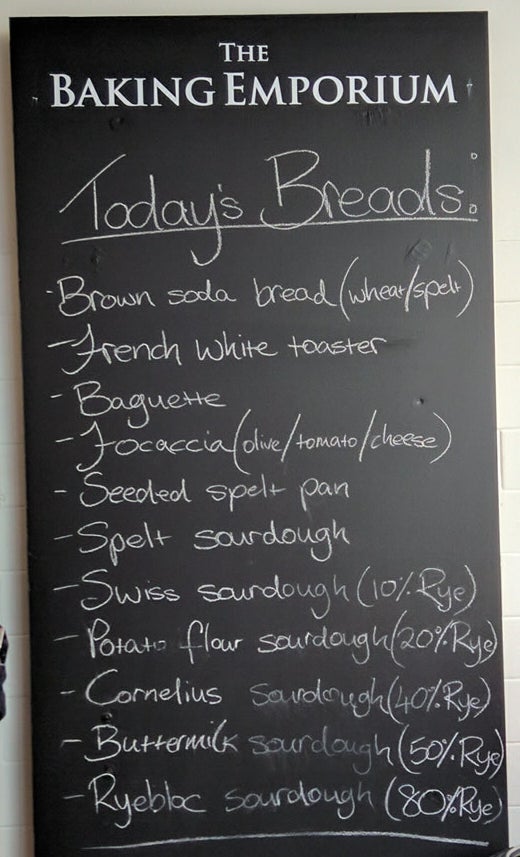 THE
BAKING EMPORIUM
Today's Breads:
- Brown soda bread (wheat/spelt)
- French white toaster
- Baguette
- Focaccia (olive/tomato/cheese)
- Seeded spelt pan
- Spelt sourdough
- Swiss sourdough (10% Rye)
- Potato flour sourdough (20% Rye)
- Cornelius sourdough (40% Rye)
- Buttermilk sourdough (50% Rye)
- Ryebloc sourdough (80% Rye)